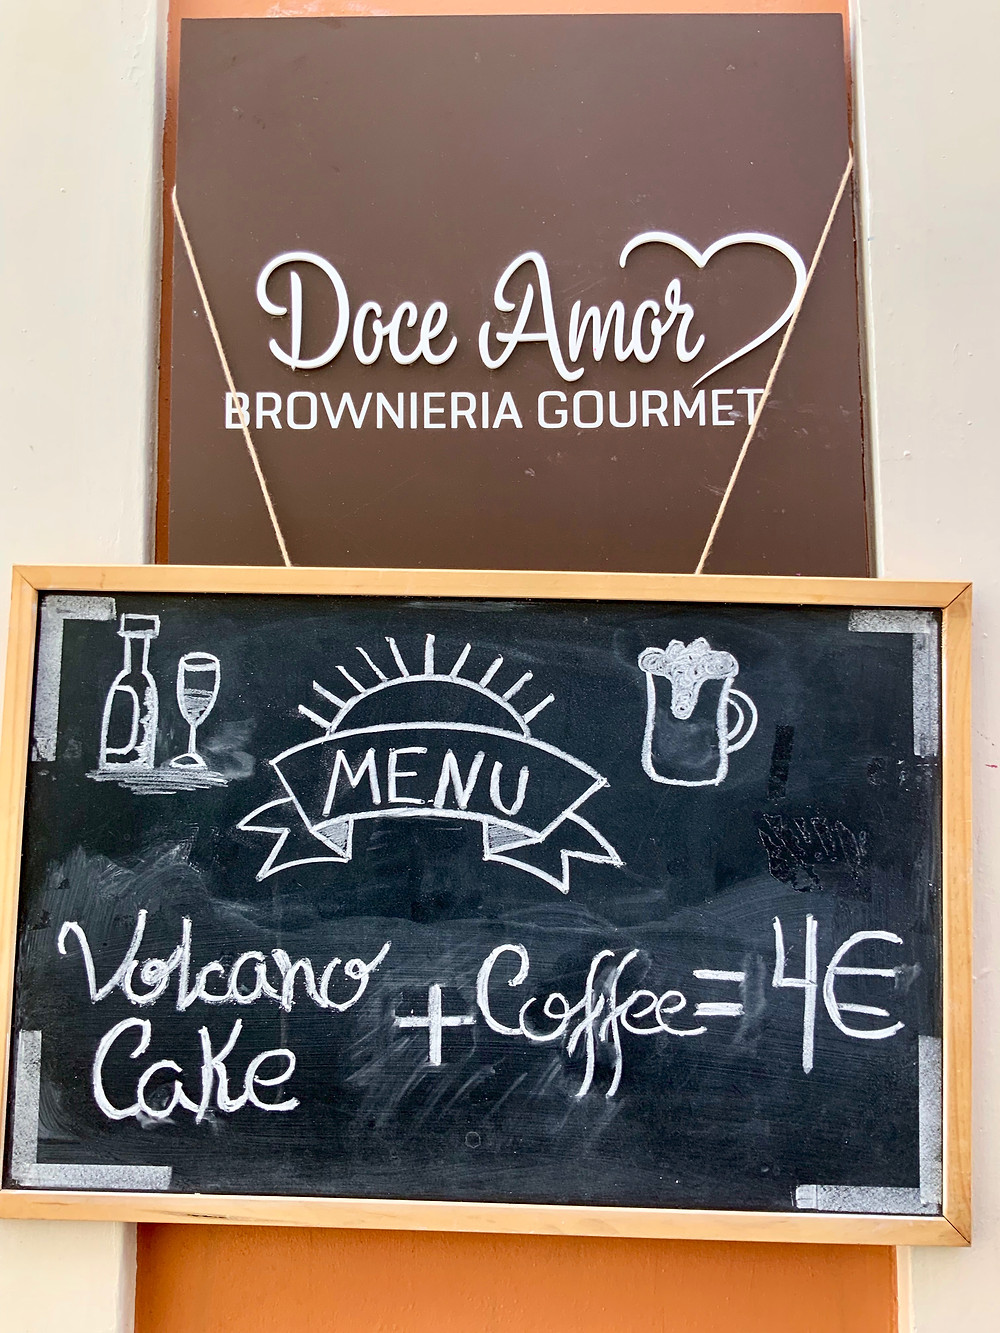 Doce Amor
BROWNIERIA GOURMET
MENU
Volcano
Cake + Coffee = 4€